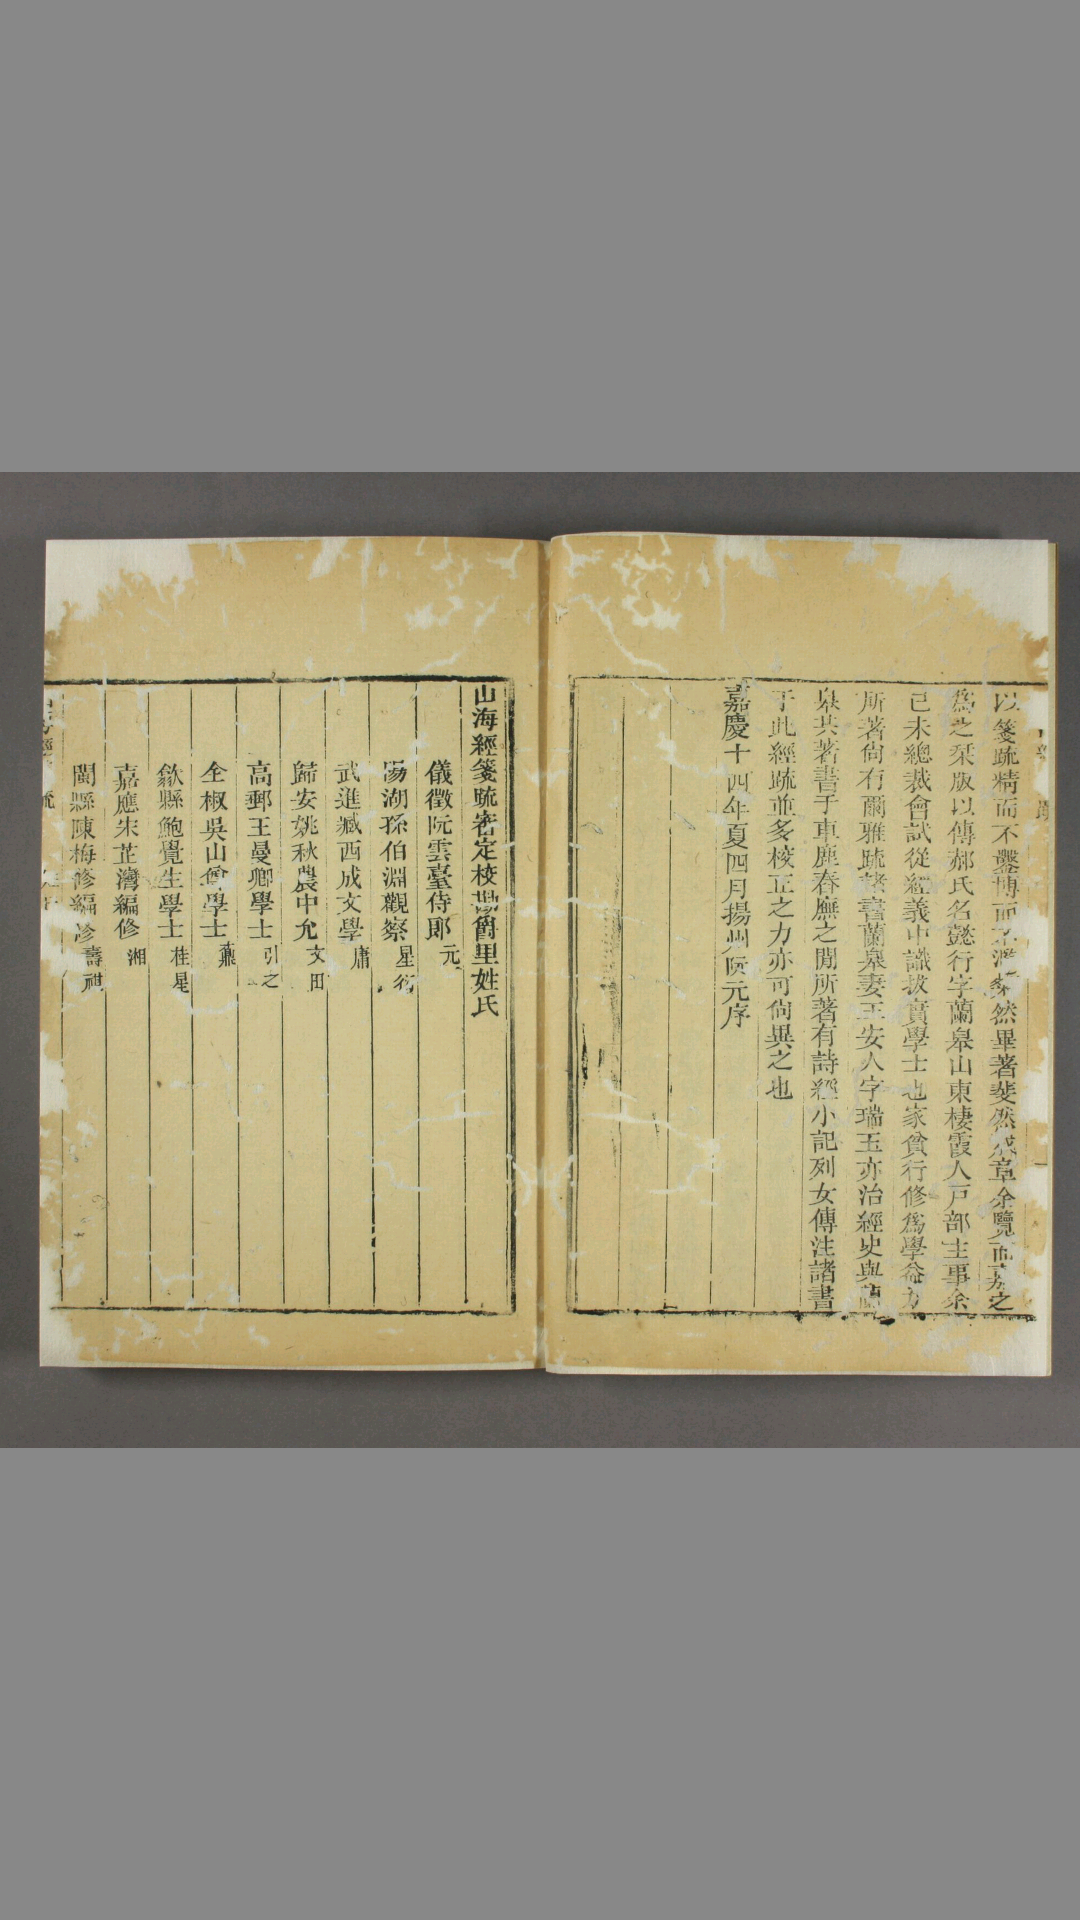 以箋疏精而不鑿博而不濫粲然畢著斐然成章余覽而嘉之
爲之栞版以傳郝氏名懿行字蘭皋山東棲霞人戸部主事余
己未總裁會試從經義中識拔實學士也家貧行修爲學益力
所著尚有爾雅疏諸書蘭皋妻王安人字瑞玉亦治經史與蘭
皋共著書于車鹿春廡之閒所著有詩經小記列女傳注諸書
于此經疏並多校正之力亦可尚異之也
嘉慶十四年夏四月揚州阮元序
山海經箋疏審定校勘爵里姓氏
儀徵阮雲臺侍郎元
陽湖孫伯淵觀察星衍
武進臧西成文學庸
歸安姚秋農中允文田
高郵王曼卿學士引之
全椒吳山尊學士鼒
歙縣鮑覺生學士桂星
嘉應宋芷灣編修湘
閩縣陳梅修編修壽祺